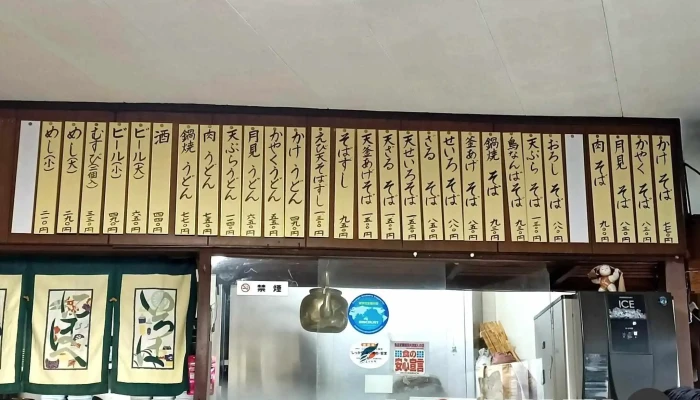 かけ そば 七〇〇円
かやく そば 八五〇円
月見 そば 八五〇円
肉 そば 九〇〇円
おろし そば 八五〇円
天ぷら そば 一三〇〇円
鳥なんばそば 九五〇円
鍋焼 そば 九五〇円
釜あげ そば 八五〇円
せいろ そば 八〇〇円
ざる そば 八五〇円
天せいろそば 一五〇〇円
天ざる そば 一五五〇円
天釜あげそば 一五五〇円
そばすし 九五〇円
えび天そばすし 一五〇〇円
かけ うどん 四九〇円
かやくうどん 五五〇円
月見 うどん 六五〇円
天ぷらうどん 一一四〇円
肉 うどん 七五〇円
鍋焼 うどん 七七〇円
酒 四四〇円
ビール(大) 六五〇円
ビール(小) 四九〇円
むすび(二個入) 三三〇円
めし(大) 二九〇円
めし(小) 二一〇円
禁煙
食の
安心宣言
ICE